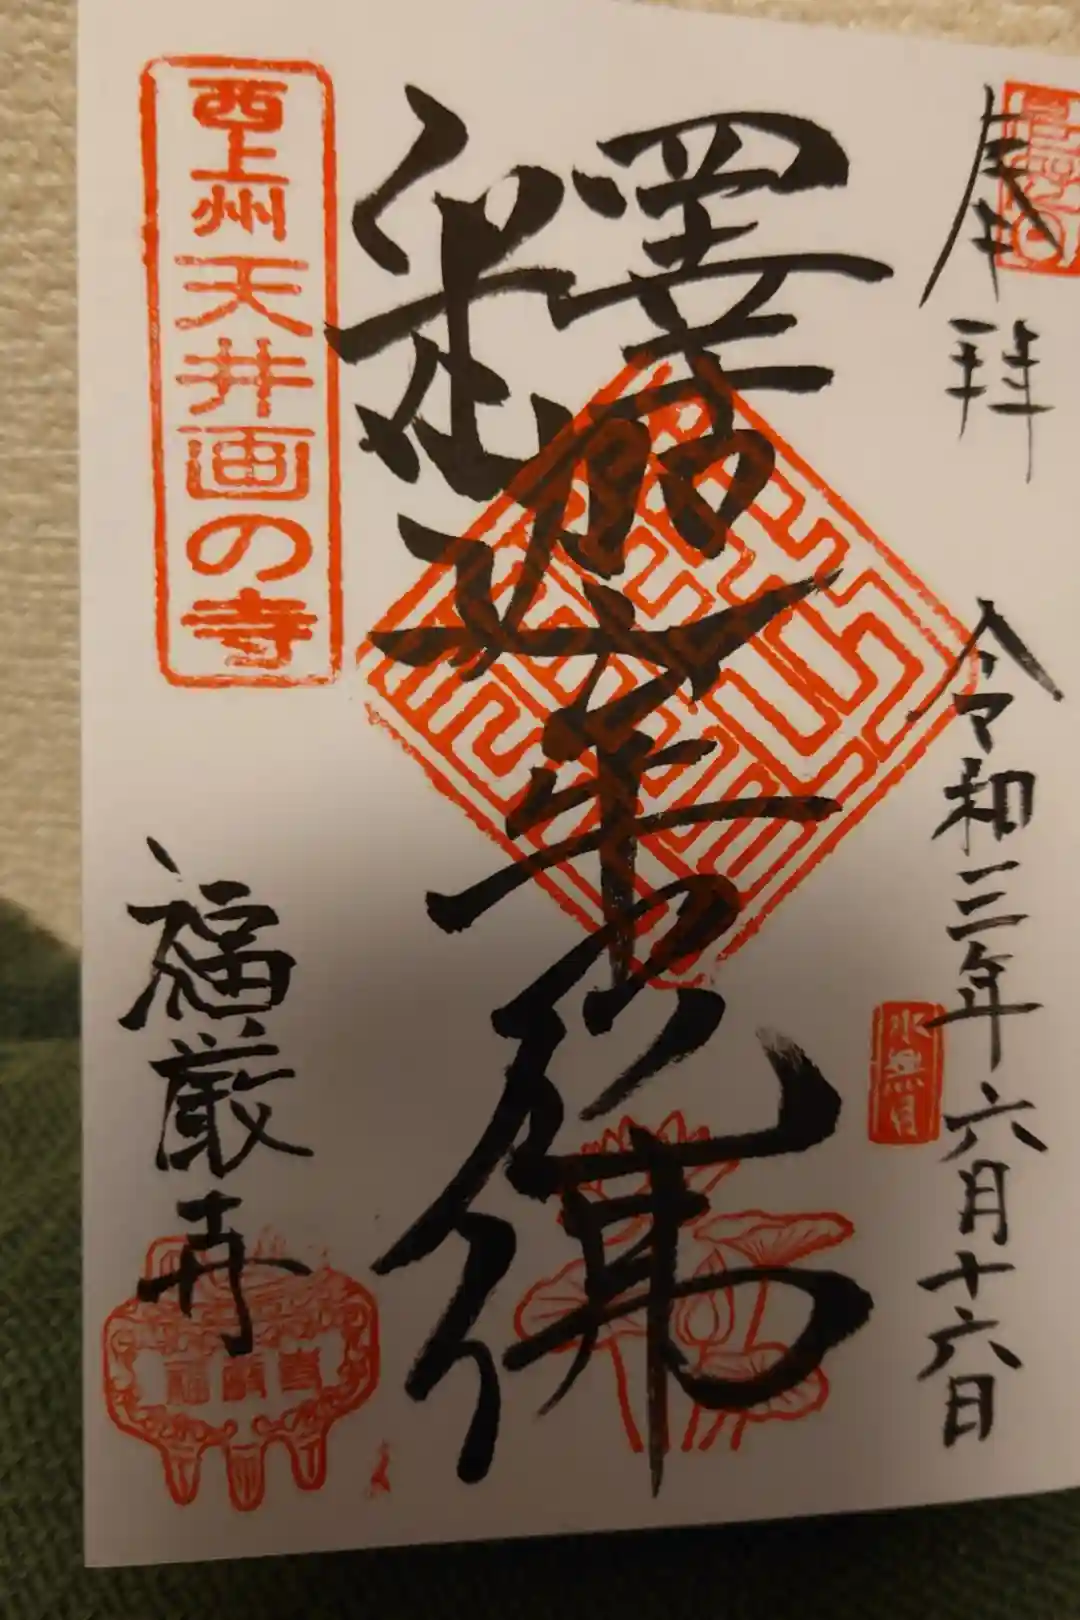 奉拝
令和三年六月十六日
水無月
釋迦牟尼佛
西上州天井画の寺
福厳寺
福厳寺